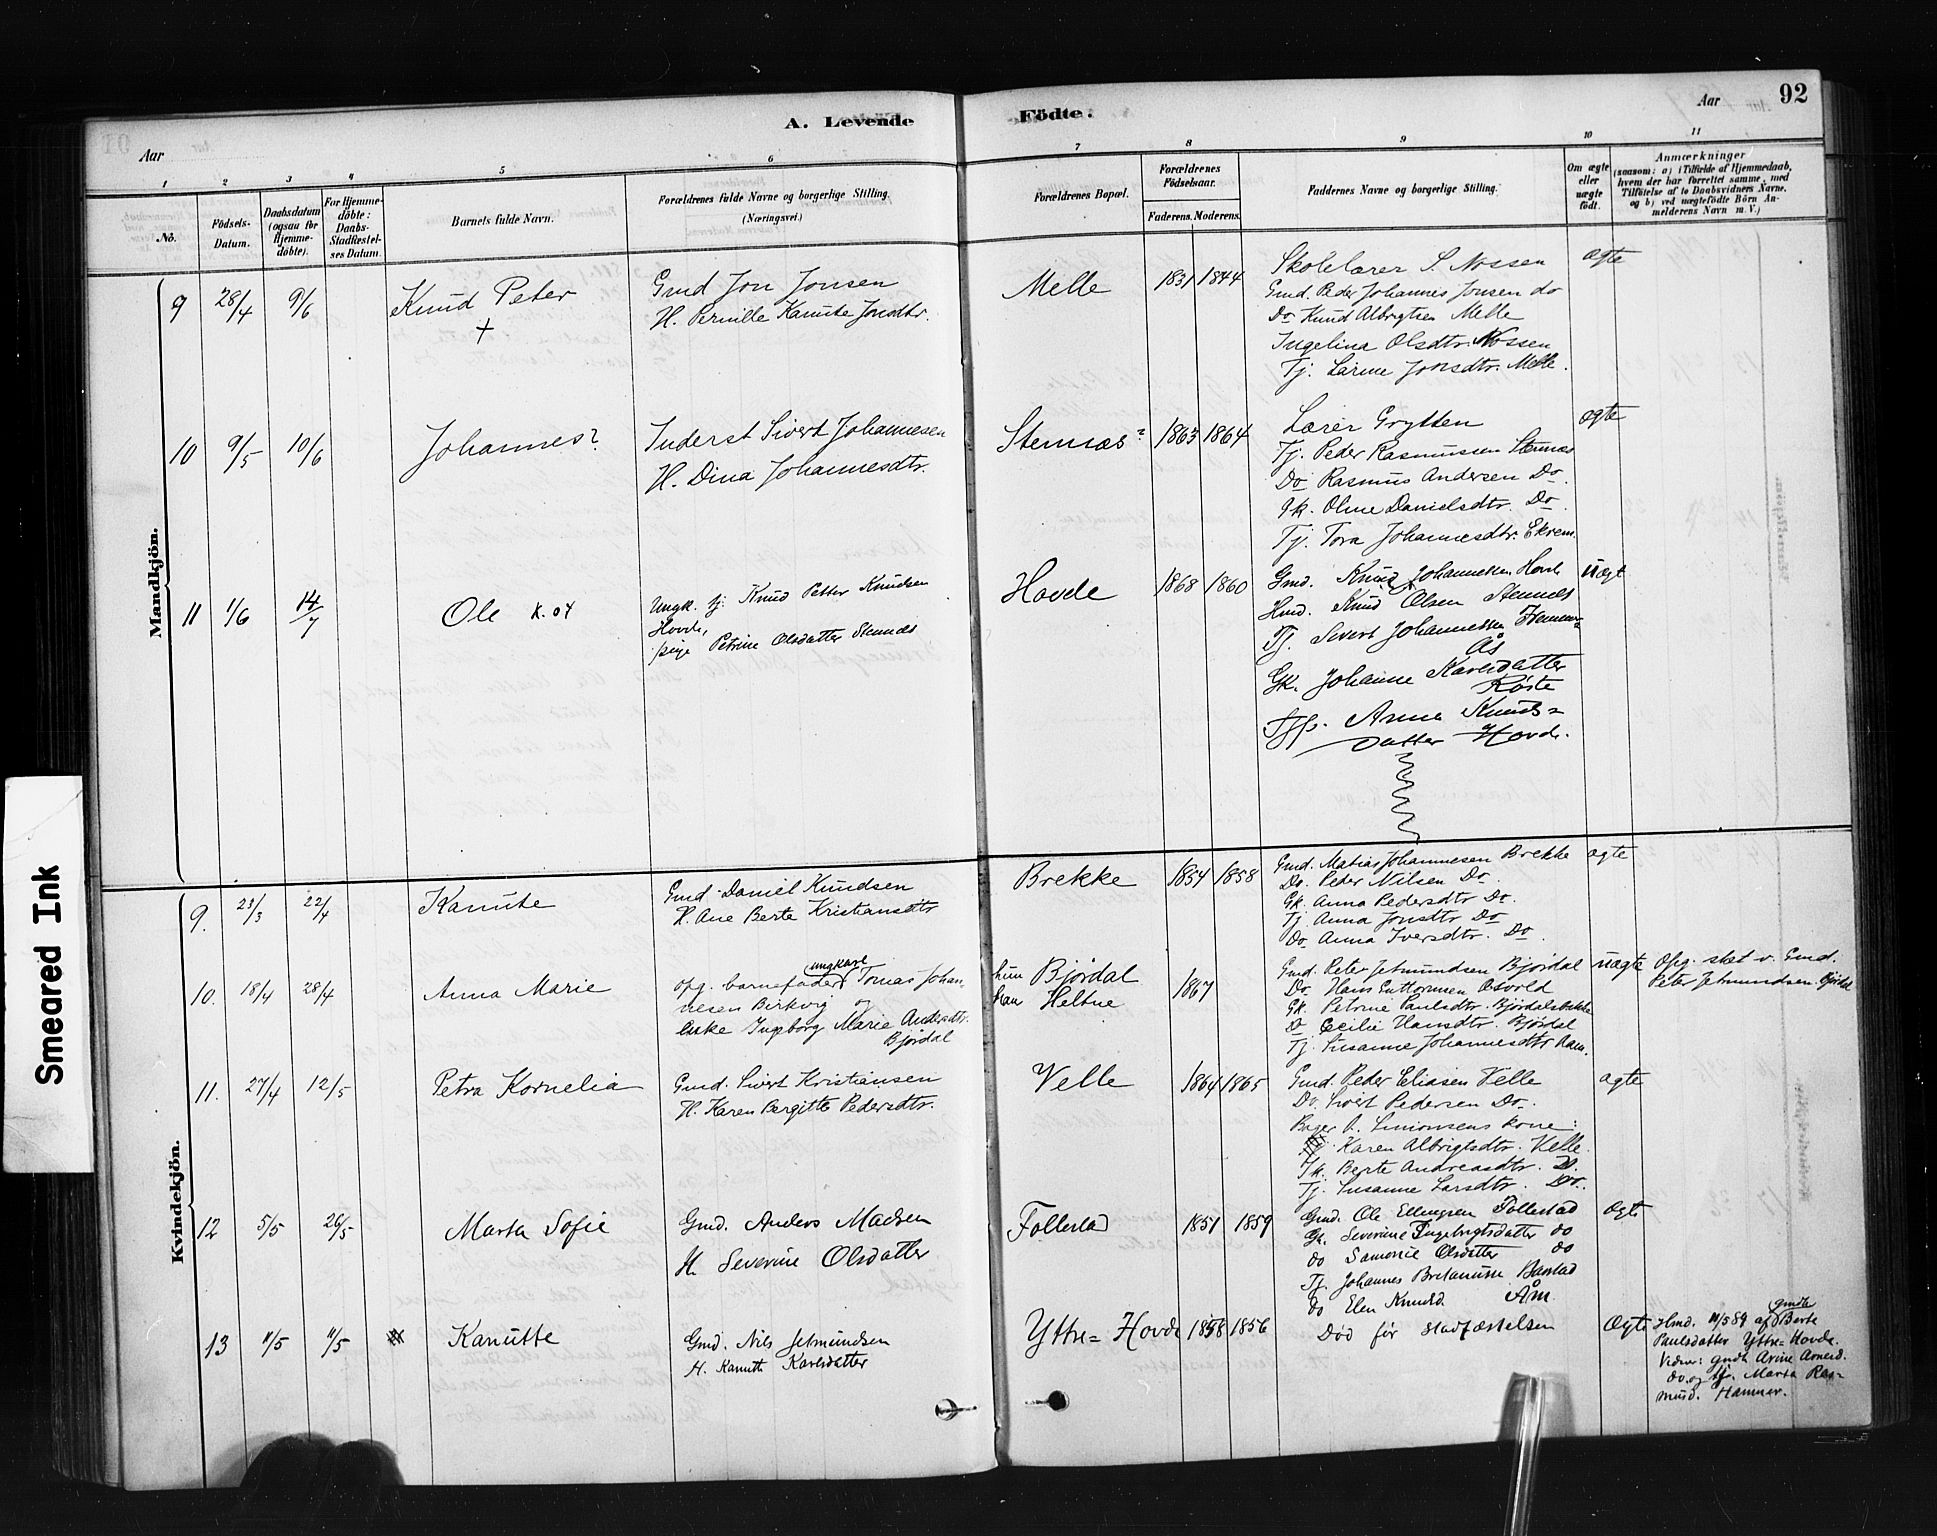 A. Levende Fødte.
92
Aar
Aar
1 2 3 4 5 6 7 8 9 10 11
No.
Fødsels-Datum.
Daabsdatum (ogsaa for Hjemme-døbte).
For Hjemme-døbte: Daabs-Stadfæstel-ses Datum.
Barnets fulde Navn.
Forældrenes fulde Navne og borgerlige Stilling. (Næringsvei.)
Forældrenes Bopæl.
Forældrenes Fødselsaar.
Faderens. Moderens.
Faddernes Navne og borgerlige Stilling.
Om ægte eller uægte født.
Anmærkninger (saasom: a) i Tilfælde af Hjemmedaab, hvem der har forrettet samme, med Tilføielse af to Daabsvidners Navne, og b) ved uægtefødte Børn An-melderens Navn m. V.)
Mandkjön.
9 28/4 9/6 Knud Peter +
Gmd Jon Jonsen
H. Pernille Kanute Jonsdtr.
Melle 1831 1844
Skolelærer S. Nossen
Gmd. Peder Johannes Jonsen do
Do Knud Albrigtsen Melle
Ingelina Olsdtr. Nossen
Tj. Larine Jonsdtr. Melle.
ægte
10 9/5 10/6 Johannes?
Inderst Sivert Johannesen
H. Dina Johannesdtr.
Stemnæs 1863 1864
Lærer Grytten
Tj. Peder Rasmussen Stemnæs
Do Rasmus Andersen Do.
Gk. Oline Danielsdtr. Do
Tj. Tora Johannesdtr. Ekrem.
ægte
11 1/6 14/7 Ole K. 04
Ungk. tj. Knud Petter Knudsen
Hovde,
pige Petrine Olsdatter Stennes
Hovde 1868 1860
Gmd. Knud Johannessen Hovde
Hmd. Knud Olsen Stennes
Tj. Sivert Johannessen
Ås
Gk. Johanne Karlsdatter
Røste
Anna Knuds=
datter Hovde.
uægt
Kvindekjön.
9. 23/3 22/4 Kanute
Gmd Daniel Knudsen
H. Ane Berte Kristiansdtr
Brekke 1854 1858
Gmd. Matias Johannesen Brekke
Do. Peder Nilsen Do.
Gk. Anna Pedersdtr Do.
Tj. Anna Jonsdtr Do
Do. Anna Iversdtr. Do.
ægte
10. 18/4 28/4 Anna Marie
opg. barnefader ungkarl Tomas Johan-
nesen Birkvig og
Enke Ingborg Marie Andersdtr.
Bjørdal
hun Bjørdal
han Heltne
1867
Gmd. Peter Jetmundsen Bjørdal
Do. Hans Guttormsen Osvold
Gk. Petrine Paulsdtr. Bjørdalsbakke
Do Cecilie Hansdtr. Bjørdal
Tj. Susanne Johannesdtr Aam.
uægte
Opg. sket v. Gmd.
Peter Jetmundsen Bjørdal
11. 27/4 12/5 Petra Kornelia
Gmd. Sivert Kristiansen
H. Karen Bergitte Pedersdtr.
Velle 1864 1865
Gmd. Peder Eliasen Velle
Do. Sivert Pedersen Do.
Bager P. Simonsens kone:
Karen Albrigtsdtr. Velle.
Gk. Berte Andreasdtr. Do.
Tj. Susanne Larsdtr. Do.
ægte
12 5/5 26/5 Marta Sofie
Gmd. Anders Madsen
H. Severine Olsdatter
Follestad 1851 1859
Gmd. Ole Ellingsen Follestad
Gk. Severine Ingebrigtsdatter do
do Samorie Olsdatter do
Tj. Johannes Baastad
do Elen Knudsd. Åm
ægte
13 11/5 11/5 Kanutte
Gmd. Nils Jetmundsen
H. Kanutte Karlsdatter
Yttre= Hovde 1858 1856
Død før Stadfæstelsen
Ægte
Hmd. 11/5 89 af gmdk Berte
Paulsdatter Yttre=Hovde.
Vidner: gmdk Arine Arnesd.
do. og tj. Marta Ras=
musd. Hamner.
Smeared Ink